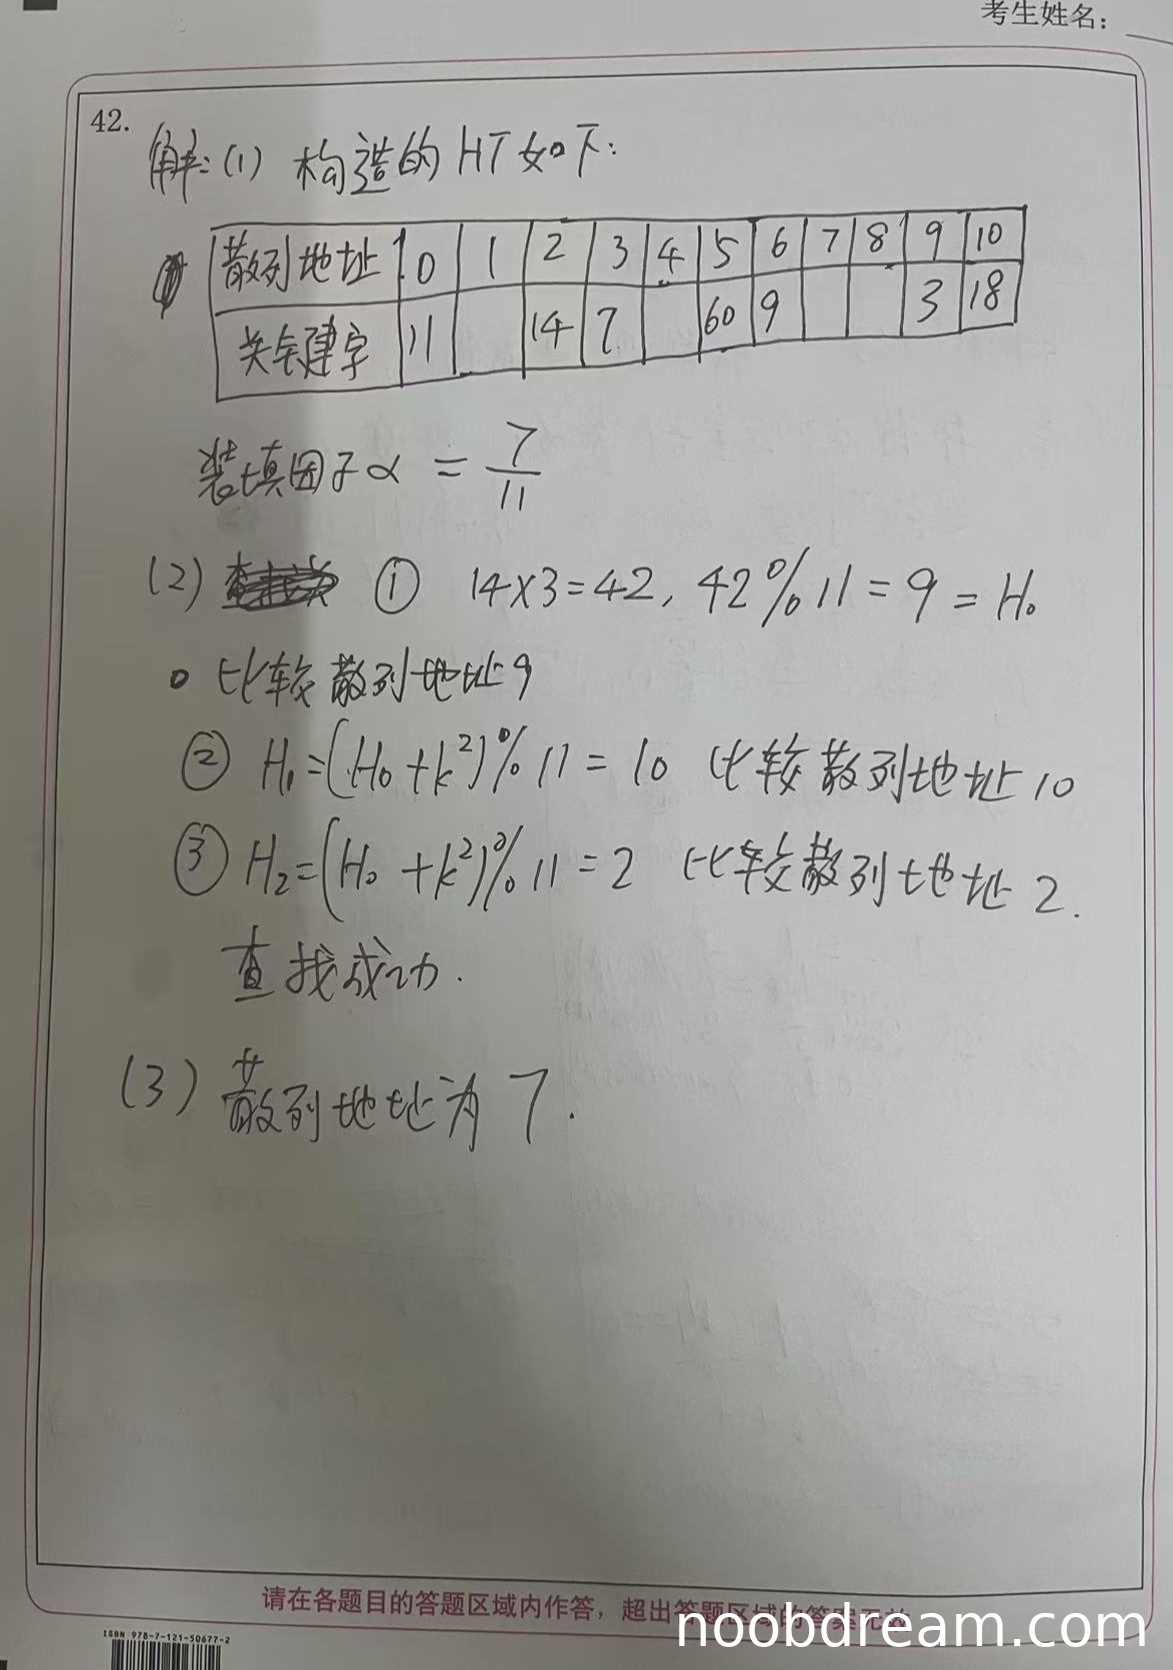 考生姓名：
42.
解：(1) 构造的HT如下：
散列地址 0 1 2 3 4 5 6 7 8 9 10
关键字 11 14 7 60 9 3 18
装填因子α = 7/11
(2) ① 14×3=42, 42%11=9=H₀
比较散列地址9
② H₁=(H₀+k²)%11=10 比较散列地址10
③ H₂=(H₀+k²)%11=2 比较散列地址2.
查找成功.
(3) 散列地址为7.
请在各题目的答题区域内作答，超出答题区域的答案无效
ISBN 978-7-121-50677-2
noobdream.com